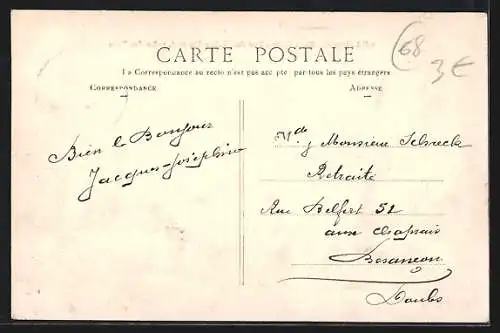 CARTE POSTALE
La Correspondance au recto n'est pas acc ptée par tous les pays étrangers
CORRESPONDANCE
ADRESSE
68
3€
Bien le Bonjour
Jacques-Joséphine
Monsieur Schreck
Retraité
Rue Belfort 52
aux chaprais
Besançon
Doubs